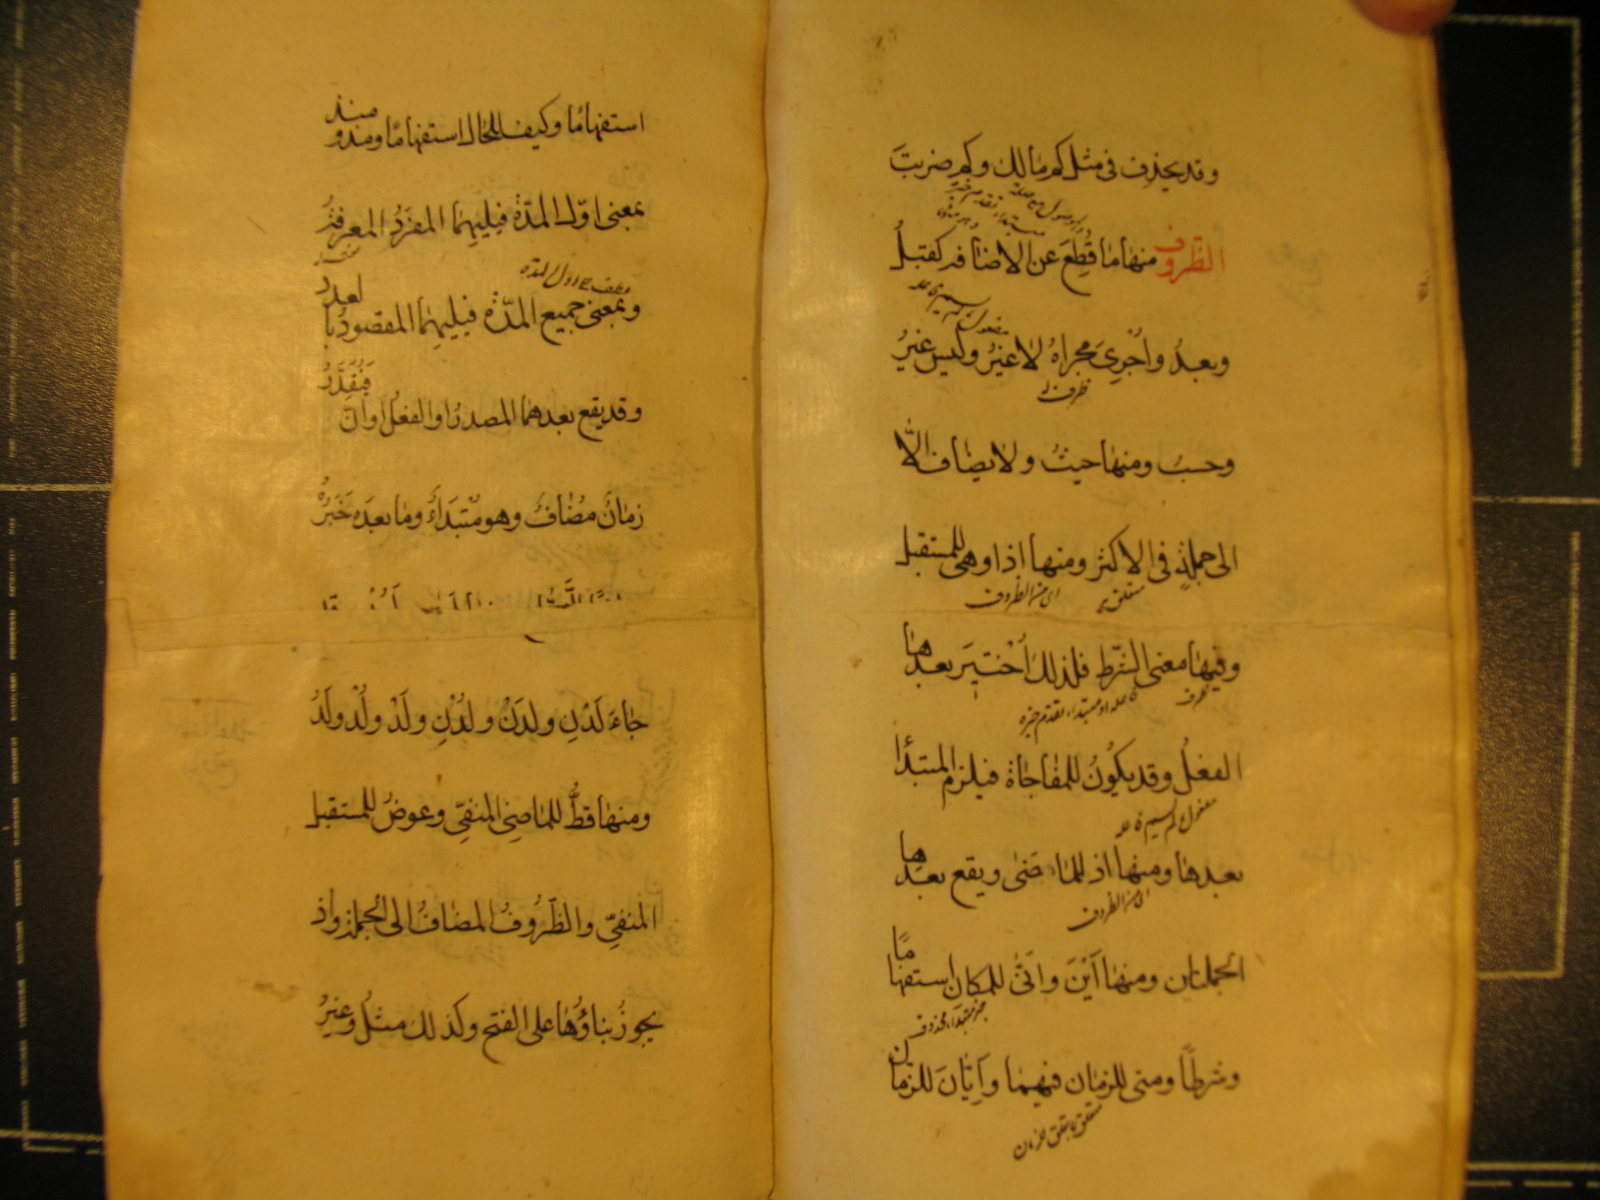 وقد يحذف فى مثل كم مالك وكم ضربتَ
الظروف منها ما قُطِعَ عن الاضافة كقبلُ
وبعدُ واُجْرِىَ مجراهُ لا غيرُ وليس غيرُ
وحسبُ ومنها حيثُ ولا يضاف الّا
الى جملةٍ فى الاكثر ومنها اذا وهى للمستقبل
اى من الظروف
وفيها معنى الشرط فلذلك اُخْتيرَ بعدها
الفعلُ وقد يكونُ للمفاجاة فيلزم المبتدأ
بعدها ومنها اذ للماضى ويقع بعدها
اى من الظروف
الجملتان ومنها اَيْنَ واَنّى للمكان استفهامًا
خبر مبتداء محذوف
وشرطًا ومتى للزمان فيهما واَيّانَ للزمان
استفهامًا وكيف للحال استفهامًا ومذ و منذ
بمعنى اوّل المدّة فيليهما المفردُ المعرفة
وبمعنى جميع المدّة فيليهما المقصودُ بالعدد
وقد يقع بعدهما المصدرُ او الفعلُ او انّ فَيُقَدَّرُ
زمانٌ مضافٌ وهو مُبْتَدَأٌ وما بعدَه خَبَرُهُ
جاءَ لَدْنِ ولَدَنْ ولَدُنِ ولَدْ ولُدْ ولَدُ
ومنها قطُّ للماضى المنفىّ وعوضُ للمستقبل
المنفىّ والظّروفُ المضافُ الى الجملة واذ
يجوزُ بناؤُها على الفتح وكذلك مثلُ وغيرُ